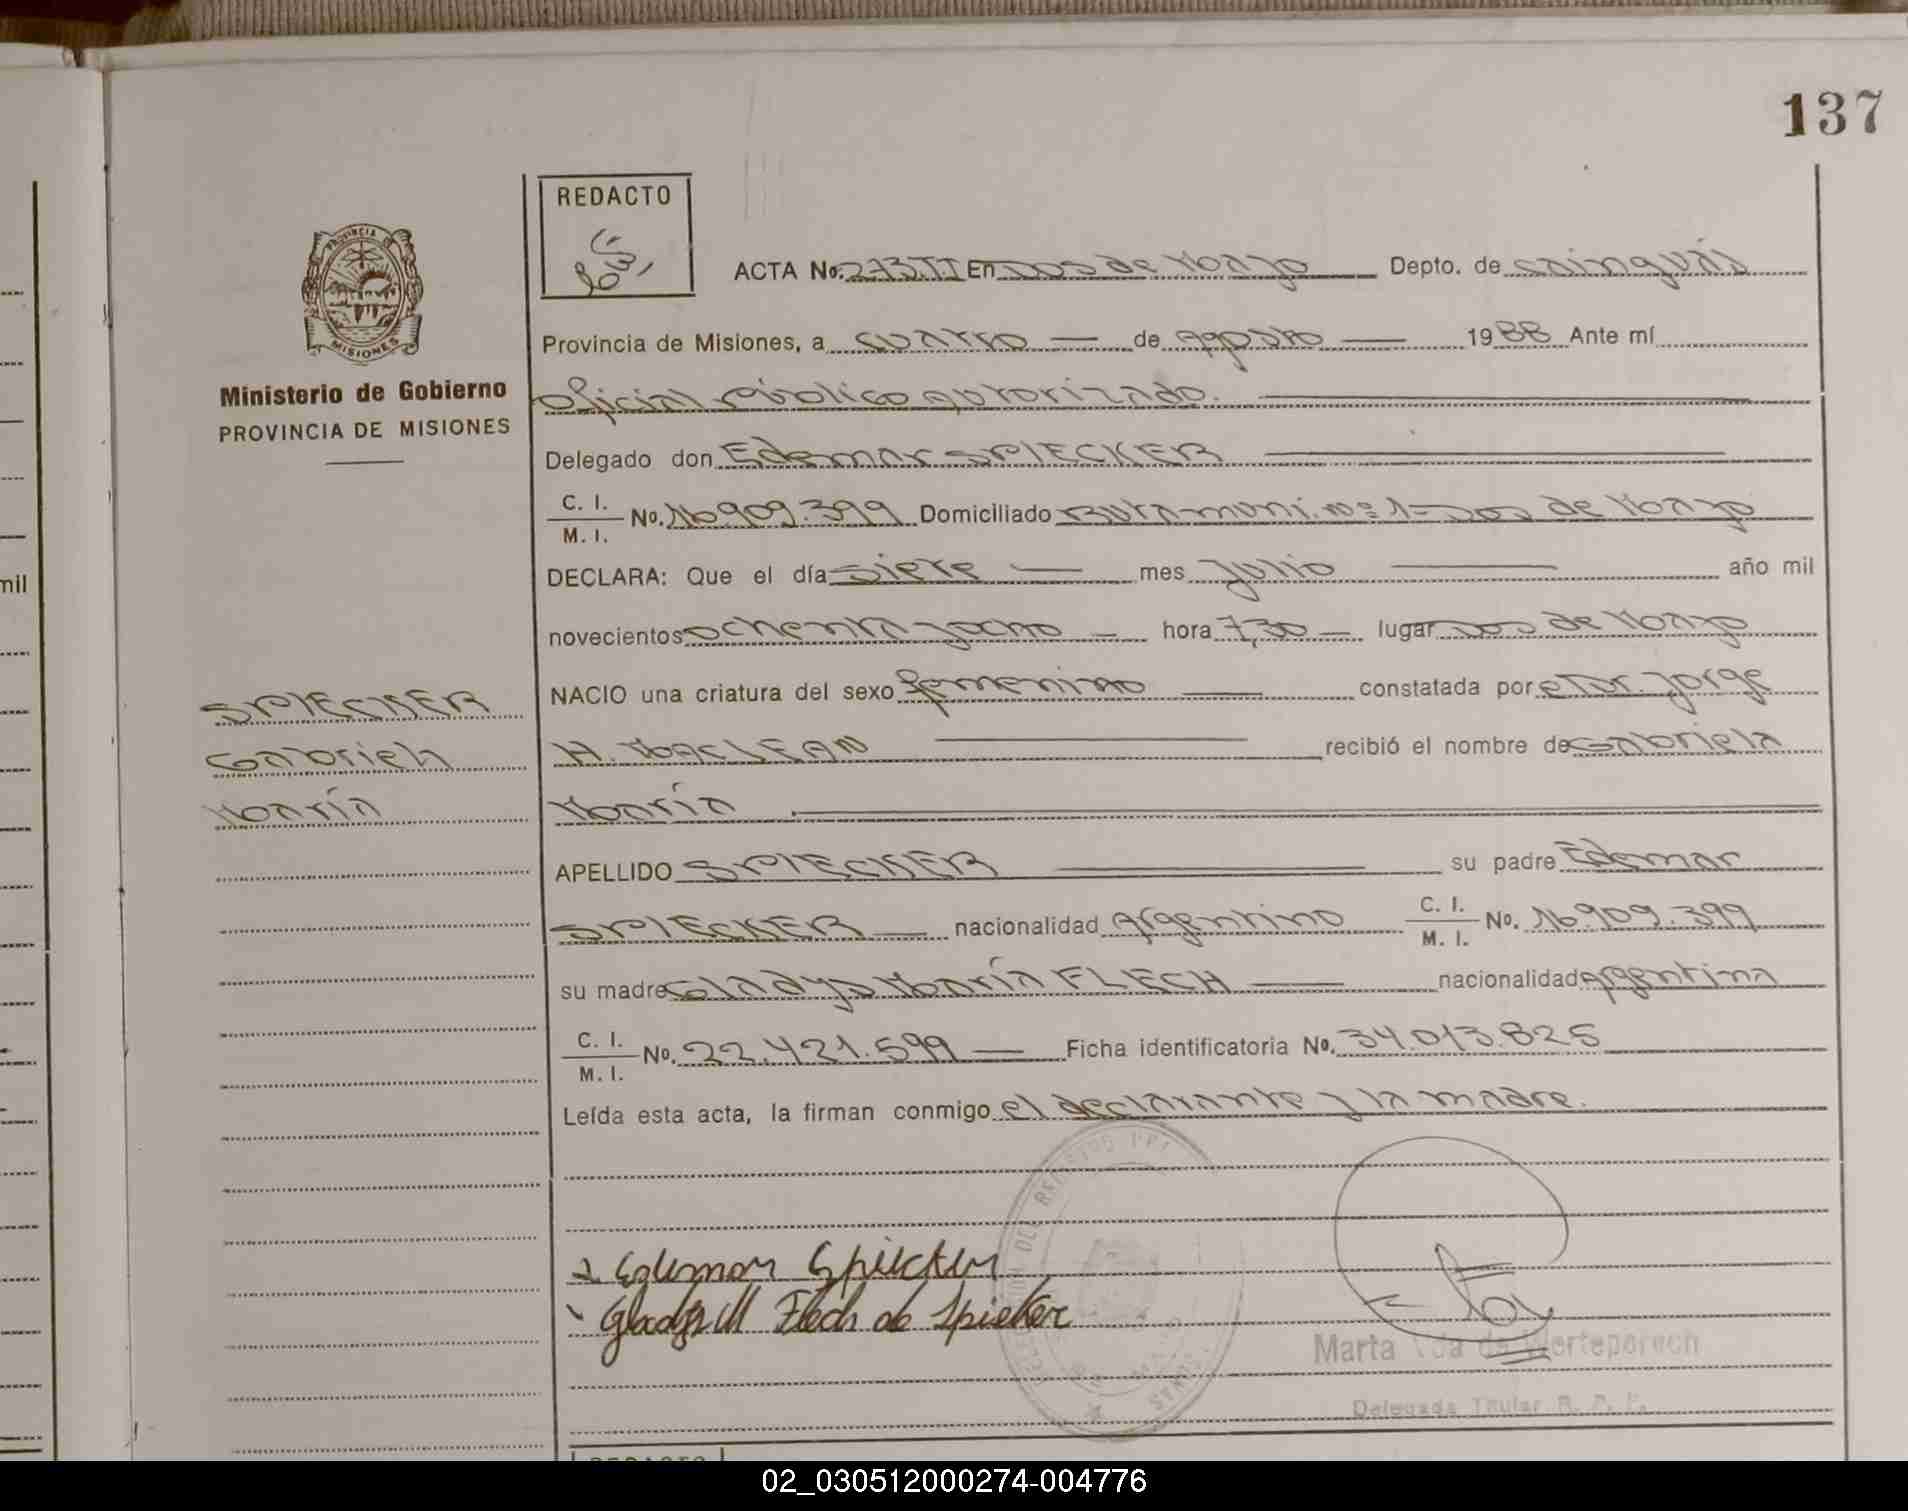 137
REDACTO
PROVINCIA DE
MISIONES
ACTA No. 273.TI En Dos de Mayo Depto. de Cainguás
Provincia de Misiones, a cuatro — de Agosto — 1988 Ante mí
Oficial Público autorizado.
Ministerio de Gobierno
PROVINCIA DE MISIONES
Delegado don Edemar SPIECKER
C. I.
M. I. No. 16.909.399 Domiciliado Ruta muni. nº 1- Dos de Mayo
DECLARA: Que el día siete — mes Julio — año mil
mil
novecientos ochenta y ocho — hora 7,30 — lugar Dos de Mayo
NACIO una criatura del sexo femenino — constatada por el Dr. Jorge
SPIECKER
H. MACLEAN — recibió el nombre de Gabriela
Gabriela
María
María
APELLIDO SPIECKER — su padre Edemar
SPIECKER — nacionalidad Argentino C. I.
M. I. No. 16.909.399
su madre Gladys María FLECH — nacionalidad Argentina
C. I.
M. I. No. 22.421.599 — Ficha identificatoria No. 34.013.825
Leída esta acta, la firman conmigo el declarante y la madre.
Edemar Spiecker
Gladys M Flech de Spieker
Marta de Werteporech
Delegada Titular R. P. P.
02_030512000274-004776